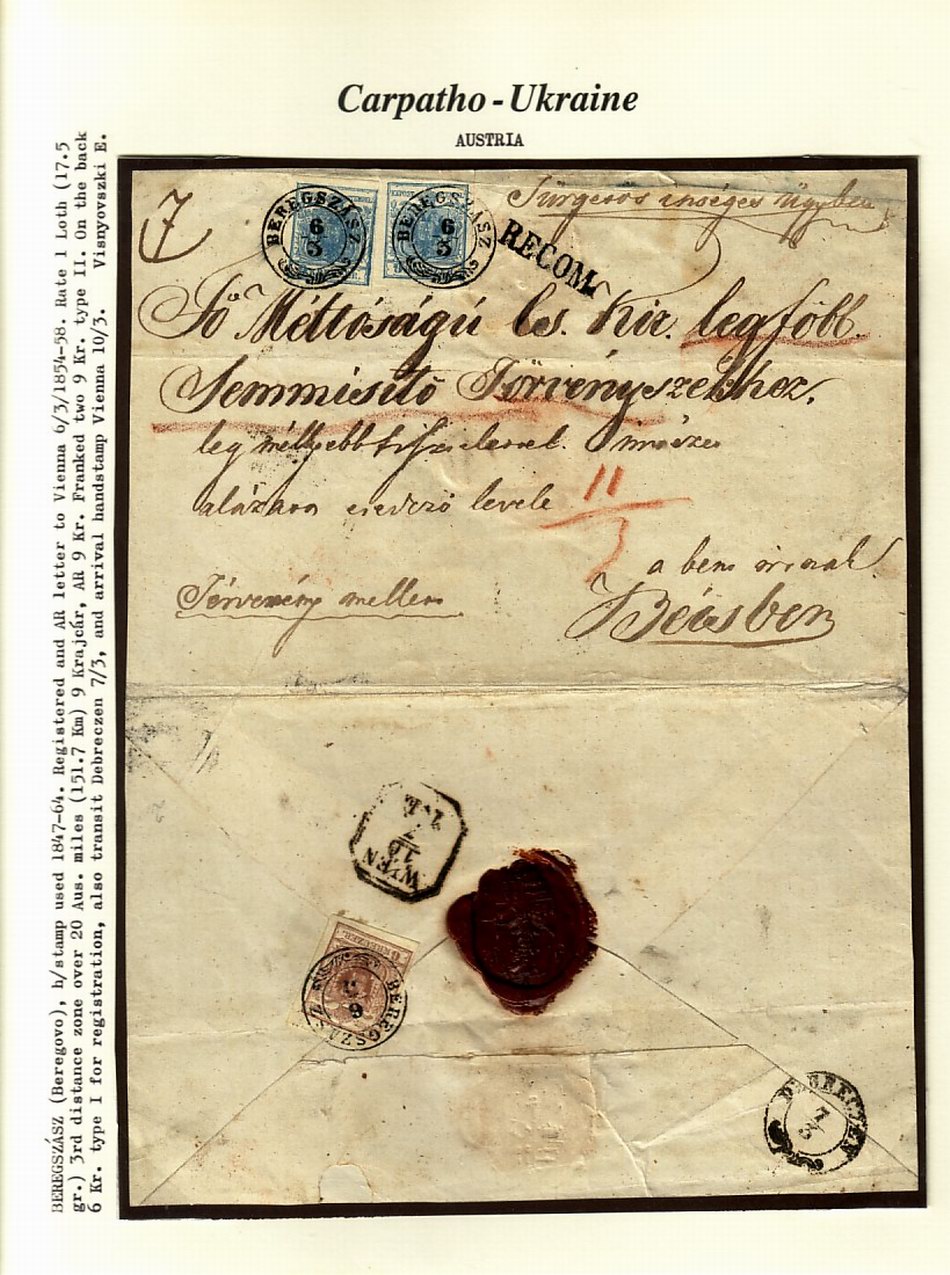 Carpatho-Ukraine
AUSTRIA
BEREGSZÁSZ (Beregovo), h/stamp used 1847-64. Registered and AR letter to Vienna 6/3/1854-58. Rate 1 Loth (17.5
gr.) 3rd distance zone over 20 Aus. miles (151.7 Km) 9 Krajcár, AR 9 Kr. Franked two 9 Kr. type II. On the back
6 Kr. type I for registration, also transit Debreczen 7/3, and arrival handstamp Vienna 10/3. Visnyovszki E.
BEREGSZÁSZ
6
3
BEREGSZÁSZ
6
3
RECOM.
Sürgetős ínséges ügyben
Fő Méltóságú Cs. Kir. legfőbb
Semmisítő Törvényszékhez,
alázatos esedező levele
11
3
Törvény mellett
Bécsben
WIEN
10
3
6 KREUZER
BEREGSZÁSZ
6
3
DEBRECZEN
7
3